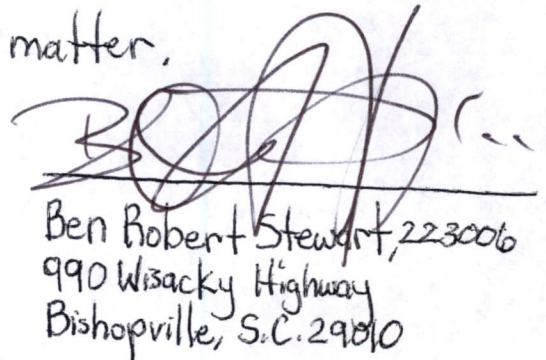 matter.
Ben Robert Stewart, 223006
990 Wisacky Highway
Bishopville, S.C. 29010